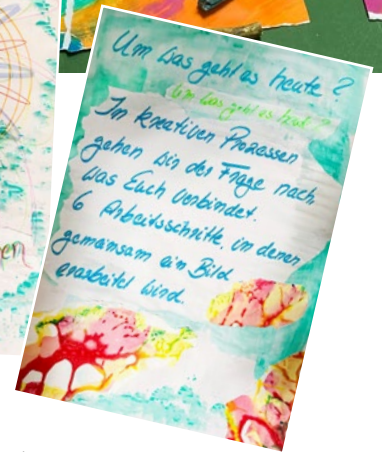 Um was geht es heute?
Um was geht es heute?
In kreativen Prozessen
gehen wir der Frage nach,
was Euch verbindet.
6 Arbeitsschritte, in denen
gemeinsam ein Bild
erarbeitet wird.
en